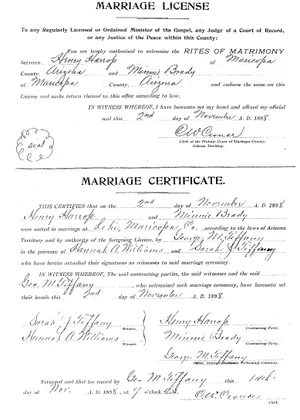 MARRIAGE LICENSE
To any Regularly Licensed or Ordained Minister of the Gospel, any Judge of a Court of Record,
or any Justice of the Peace within this County:
You are hereby authorized to solemnize the RITES OF MATRIMONY
between Henry Harrop of Maricopa
County, Arizona and Minnie Brady
of Maricopa County, Arizona and endorse the same on this
License and make return thereof to this office according to law.
IN WITNESS WHEREOF, I have hereunto set my hand and affixed my official
seal this 2nd day of November A. D. 1898.
Seal
C W Crouse
Clerk of the Probate Court of Maricopa County,
Arizona Territory.
MARRIAGE CERTIFICATE.
THIS CERTIFIES that on the 2nd day of November A. D. 1898
Henry Harrop and Minnie Brady
were united in marriage at Lehi, Maricopa Co. according to the laws of Arizona
Territory and by authority of the foregoing License, by George M Tiffany
in the presence of Hannah A. Williams and Sarah J Tiffany
who have hereto attached their signatures as witnesses to said marriage ceremony.
IN WITNESS WHEREOF, The said contracting parties, the said witnesses and the said
Geo. M Tiffany who solemnized such marriage ceremony, have hereunto set
their hands this 2nd day of November A. D. 1898.
Sarah J Tiffany Witness. Henry Harrop Contracting Party.
Hannah A. Williams Witness. Minnie Brady Contracting Party.
George M Tiffany
Returned and filed for record by Geo M. Tiffany this 14th
day of Nov. A. D. 1898, at 9 o'clock
C W Crouse
Clerk